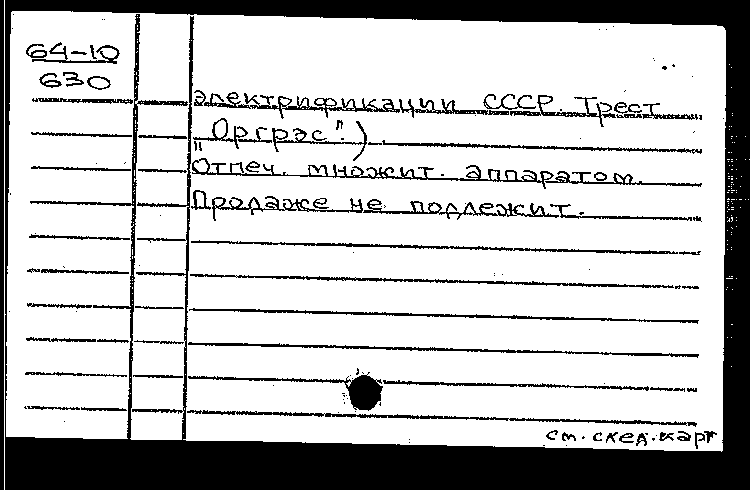 64-10
630
электрификации СССР. Трест
"Оргрэс".)
Отпеч. множит. аппаратом.
Продаже не подлежит.
см. след. карт